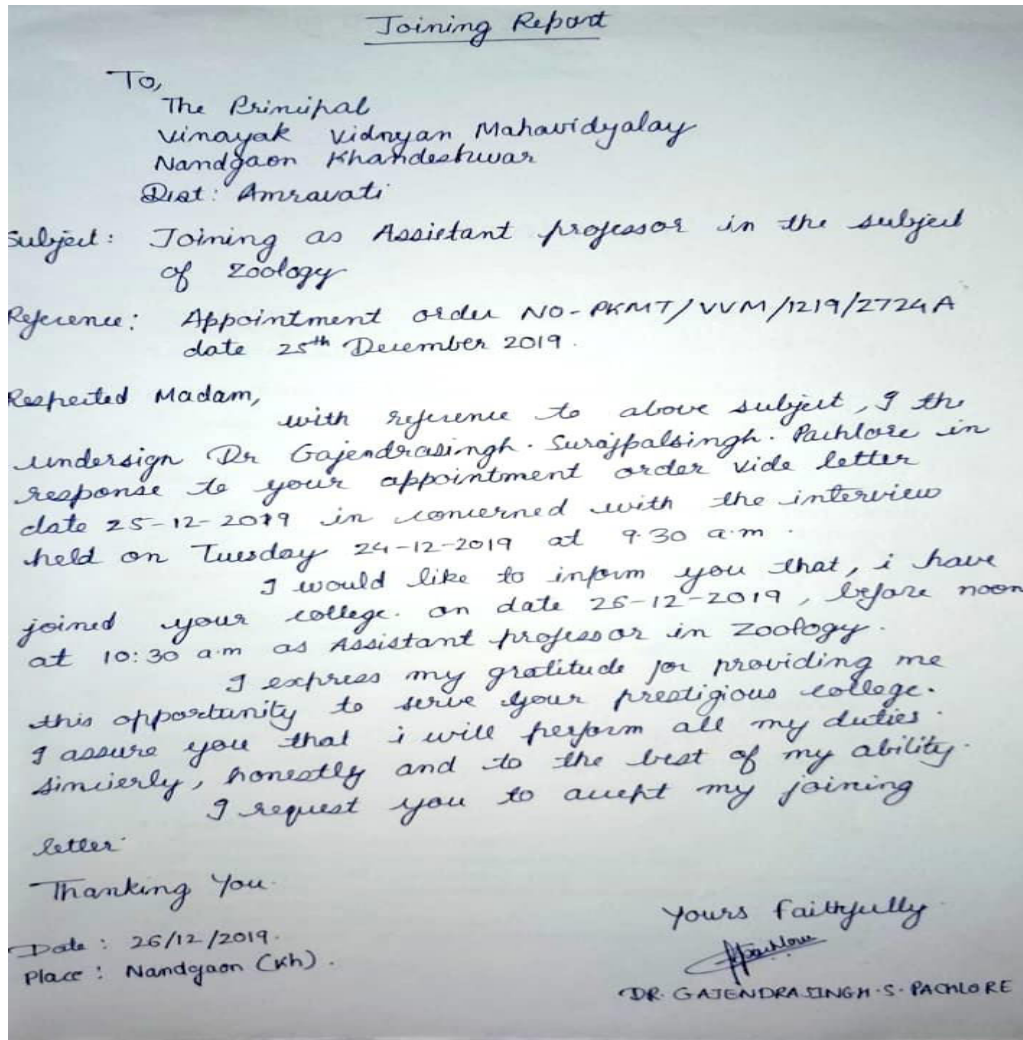 Joining Report
To,
The Principal
Vinayak Vidnyan Mahavidyalay
Nandgaon Khandeshwar
Dist: Amravati
Subject: Joining as Assistant professor in the subject
of zoology
Reference: Appointment order NO-PKMT/VVM/1219/2724A
date 25th December 2019.
Respected Madam,
with reference to above subject, I the
undersign Dr Gajendrasingh. Surajpalsingh. Pachlore in
response to your appointment order vide letter
date 25-12-2019 in concerned with the interview
held on Tuesday 24-12-2019 at 9.30 a.m.
I would like to inform you that, i have
joined your college. on date 26-12-2019, before noon
at 10:30 a.m as Assistant professor in Zoology.
I express my gratitude for providing me
this opportunity to serve your prestigious college.
I assure you that i will perform all my duties.
sincierly, honestly and to the best of my ability.
I request you to accept my joining
letter.
Thanking You.
Yours faithfully
Date: 26/12/2019.
Place: Nandgaon (Kh).
GPachlore
DR. GAJENDRASINGH.S.PACHLORE